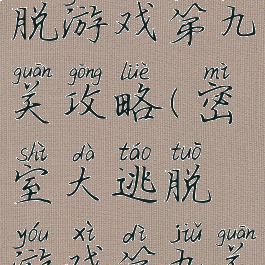 脱游戏第九
guān gōng lüè mì
关攻略(密
shì dà táo tuō
室大逃脱
yóu xì dì jiǔ guān
游戏第九关